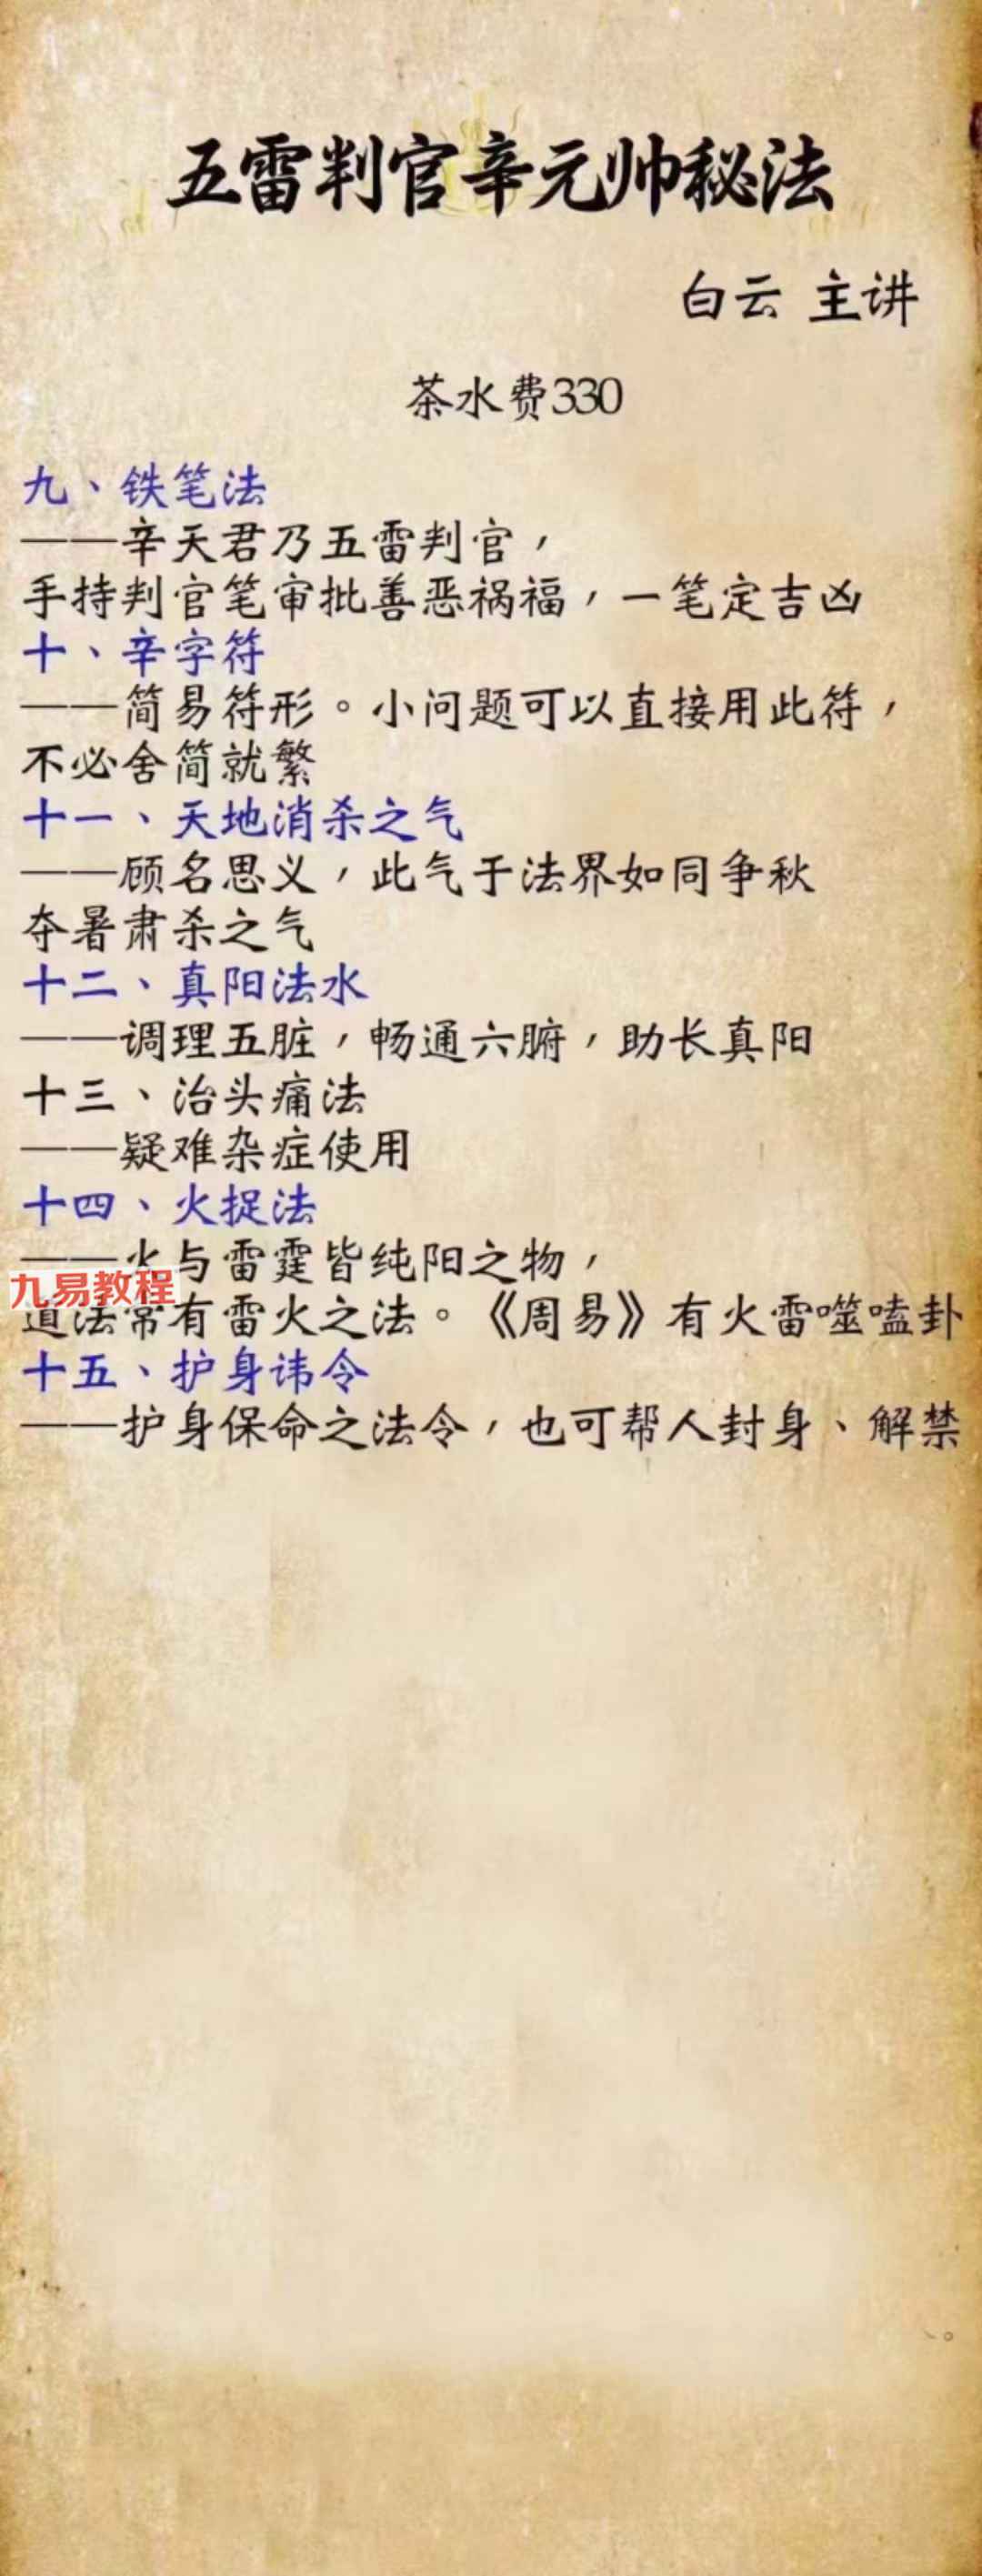 五雷判官辛元帅秘法
白云 主讲
茶水费330
九、铁笔法
——辛天君乃五雷判官，
手持判官笔审批善恶祸福，一笔定吉凶
十、辛字符
——简易符形。小问题可以直接用此符，
不必舍简就繁
十一、天地消杀之气
——顾名思义，此气于法界如同争秋
夺暑肃杀之气
十二、真阳法水
——调理五脏，畅通六腑，助长真阳
十三、治头痛法
——疑难杂症使用
十四、火捉法
——火与雷霆皆纯阳之物，
九易教程
道法常有雷火之法。《周易》有火雷噬嗑卦
十五、护身讳令
——护身保命之法令，也可帮人封身、解禁